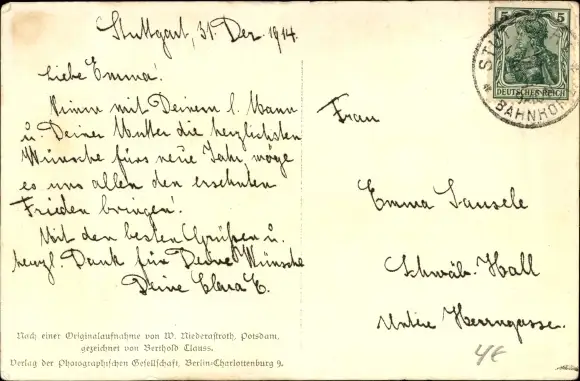 Stuttgart, 31. Dez. 1914.
Liebe Emma!
Nimm mit Deinem l. Mann
u. Deiner Mutter die herzlichsten
Wünsche fürs neue Jahr, möge
es uns allen den ersehnten
Frieden bringen!
Mit den besten Grüßen u.
herzl. Dank für Deine Wünsche
Deine Clara E.
Nach einer Originalaufnahme von W. Niederastroth, Potsdam,
gezeichnet von Berthold Clauss.
Verlag der Photographischen Gesellschaft, Berlin-Charlottenburg 9.
5 5
DEUTSCHES REICH
BAHNHOF
Frau
Emma Sausele
Schwäb. Hall
Untere Herrngasse.
4€